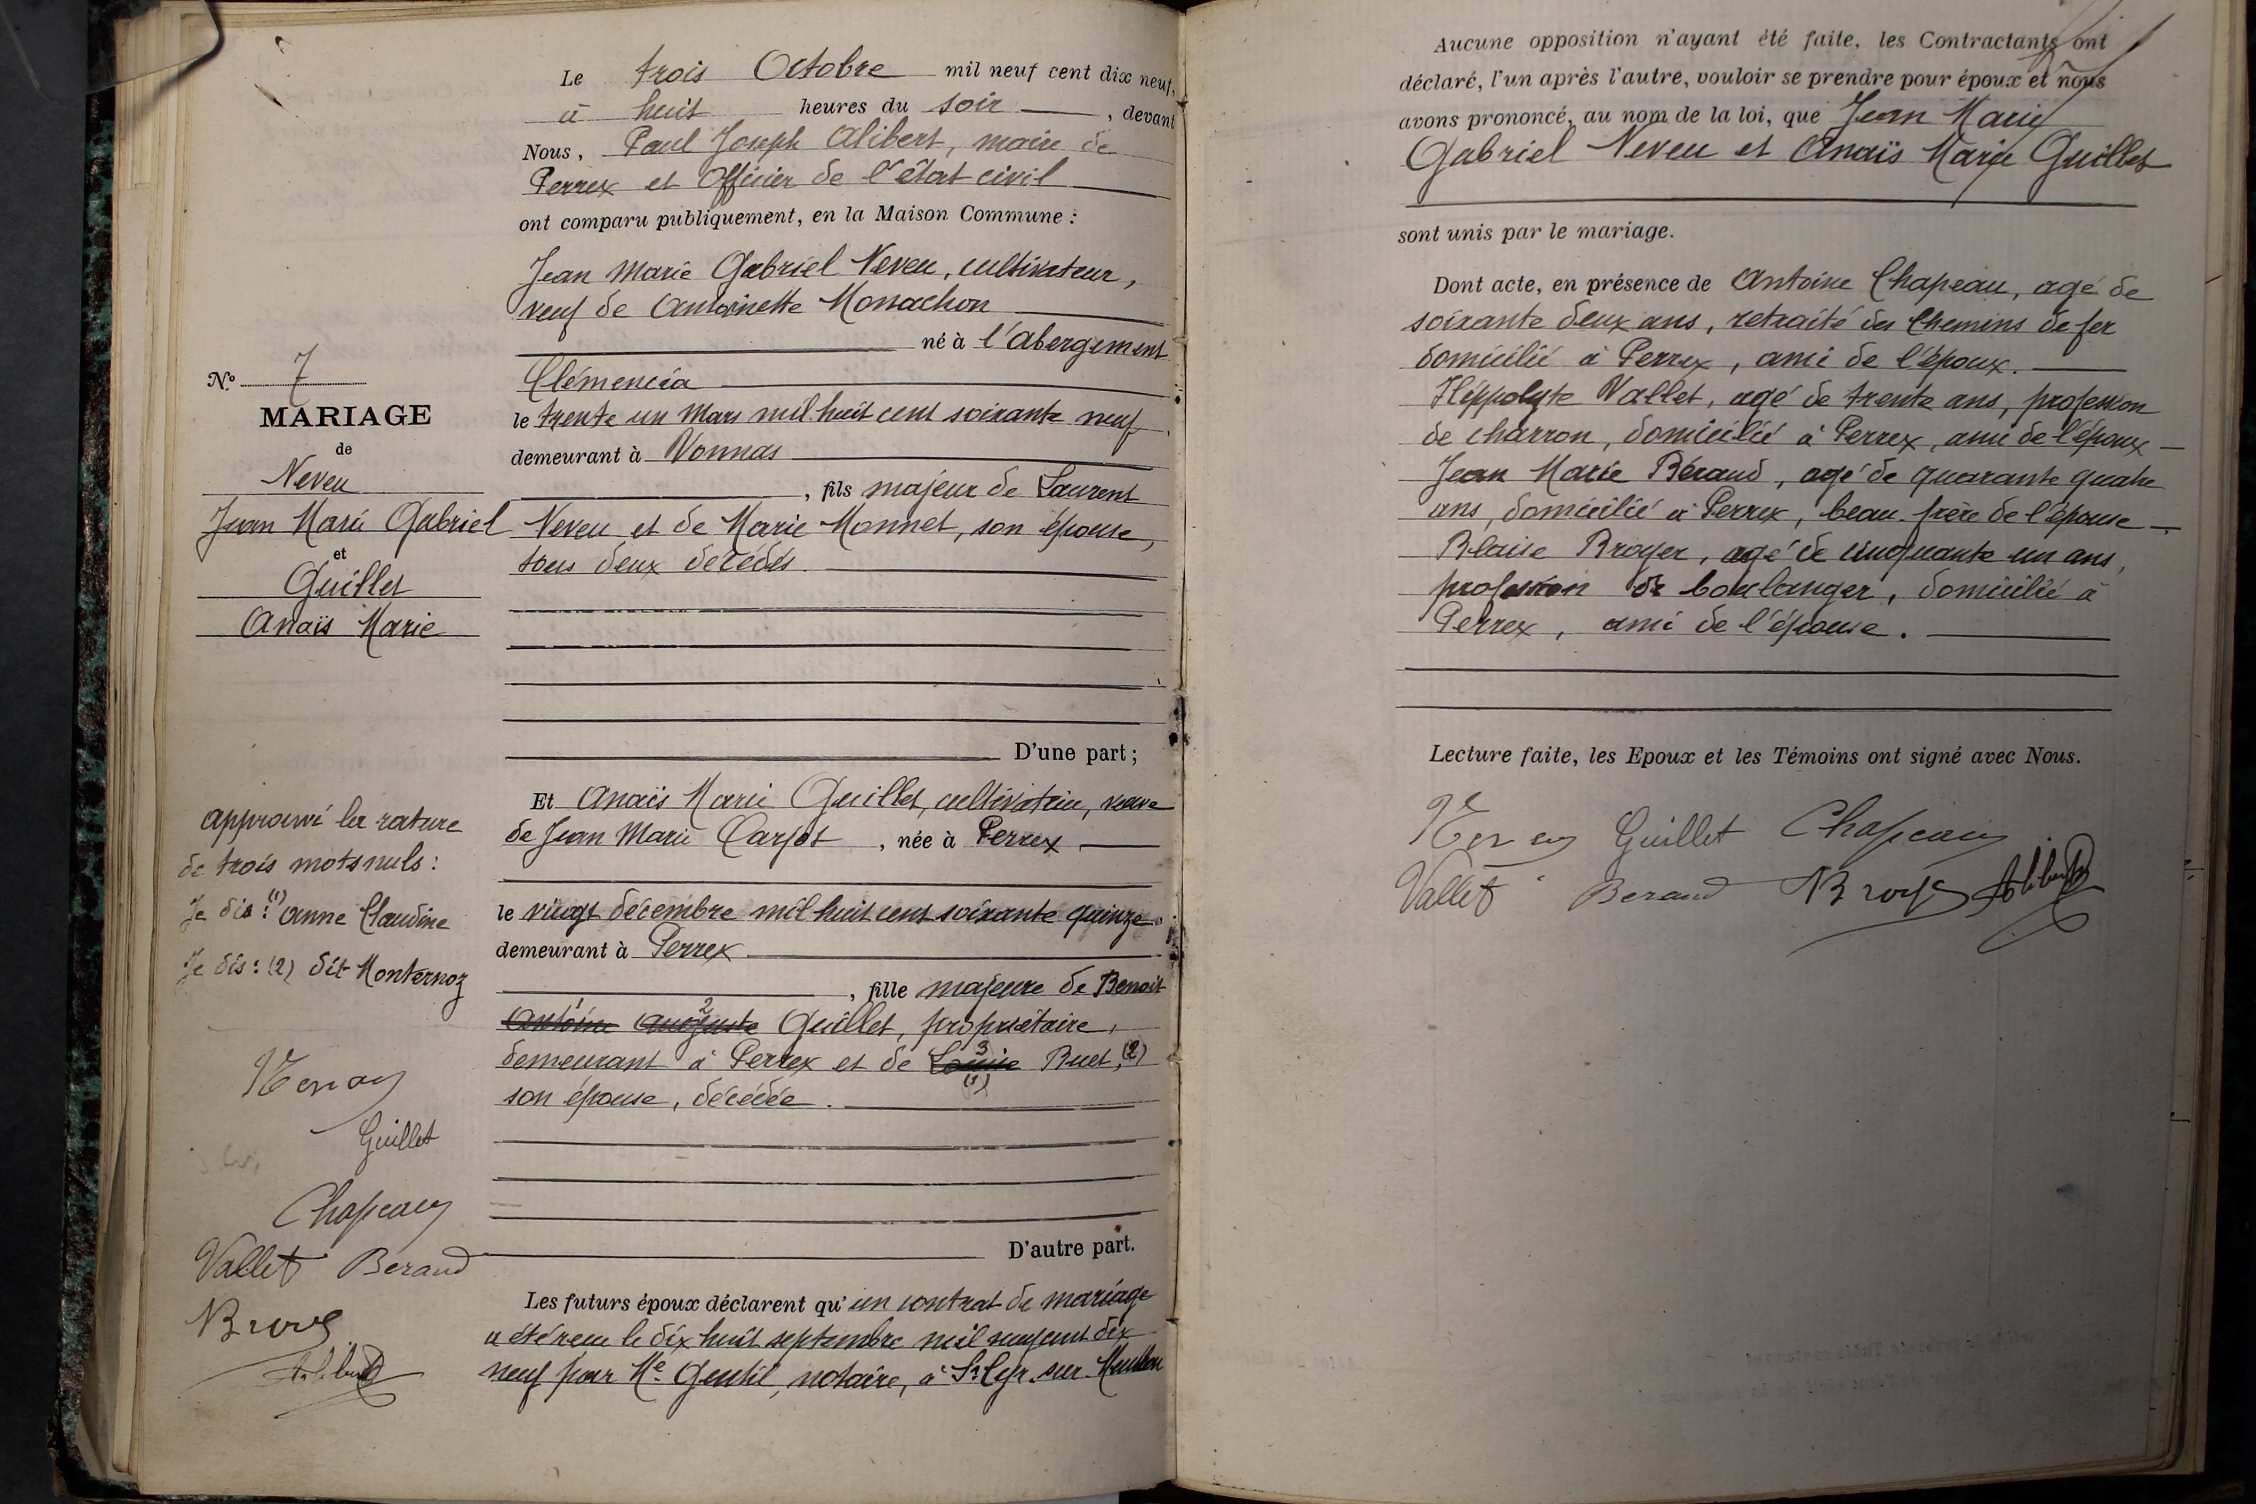 N.º 7
MARIAGE
de
Neveu
Jean Marie Gabriel
et
Guillet
Anaïs Marie
approuvé la rature
de trois mots nuls :
Je dis : (1) anne Claudine
Je dis : (2) dit Monternoz
Neveu
Guillet
Chapeau
Vallet Beraud
Broyer
Alibert
Le trois Octobre mil neuf cent dix neuf,
à huit heures du soir, devant
Nous, Paul Joseph Alibert, maire de
Perrex et Officier de l'état civil
ont comparu publiquement, en la Maison Commune :
Jean Marie Gabriel Neveu, cultivateur,
veuf de Antoinette Monachon
né à l'Abergement
Clémencia
le trente un Mars mil huit cent soixante neuf
demeurant à Vonnas
, fils majeur de Laurent
Neveu et de Marie Monnet, son épouse,
tous deux décédés.
D'une part ;
Et Anaïs Marie Guillet, cultivatrice, veuve
de Jean Marie Carjot, née à Perrex
le vingt décembre mil huit cent soixante quinze
demeurant à Perrex
, fille majeure de Benoit
1 2
Antoine Auguste Guillet, propriétaire,
demeurant à Perrex et de Louise Ruet, (2)
3 (1)
son épouse, décédée.
D'autre part.
Les futurs époux déclarent qu'un contrat de mariage
a été reçu le dix huit septembre mil neuf cent dix
neuf par Me Gentil, notaire, à St Cyr sur Menthon
Aucune opposition n'ayant été faite, les Contractants ont
déclaré, l'un après l'autre, vouloir se prendre pour époux et nous
avons prononcé, au nom de la loi, que Jean Marie
Gabriel Neveu et Anaïs Marie Guillet
sont unis par le mariage.
Dont acte, en présence de Antoine Chapeau, agé de
soixante deux ans, retraité des Chemins de fer
domicilié à Perrex, ami de l'époux.
Hippolyte Vallet, agé de trente ans, profession
de charron, domicilié à Perrex, ami de l'époux
Jean Marie Béraud, agé de quarante quatre
ans, domicilié à Perrex, beau-frère de l'épouse
Blaise Broyer, agé de cinquante un ans,
profession de boulanger, domicilié à
Perrex, ami de l'épouse.
Lecture faite, les Epoux et les Témoins ont signé avec Nous.
Neveu Guillet Chapeau
Vallet Beraud Broyer Alibert